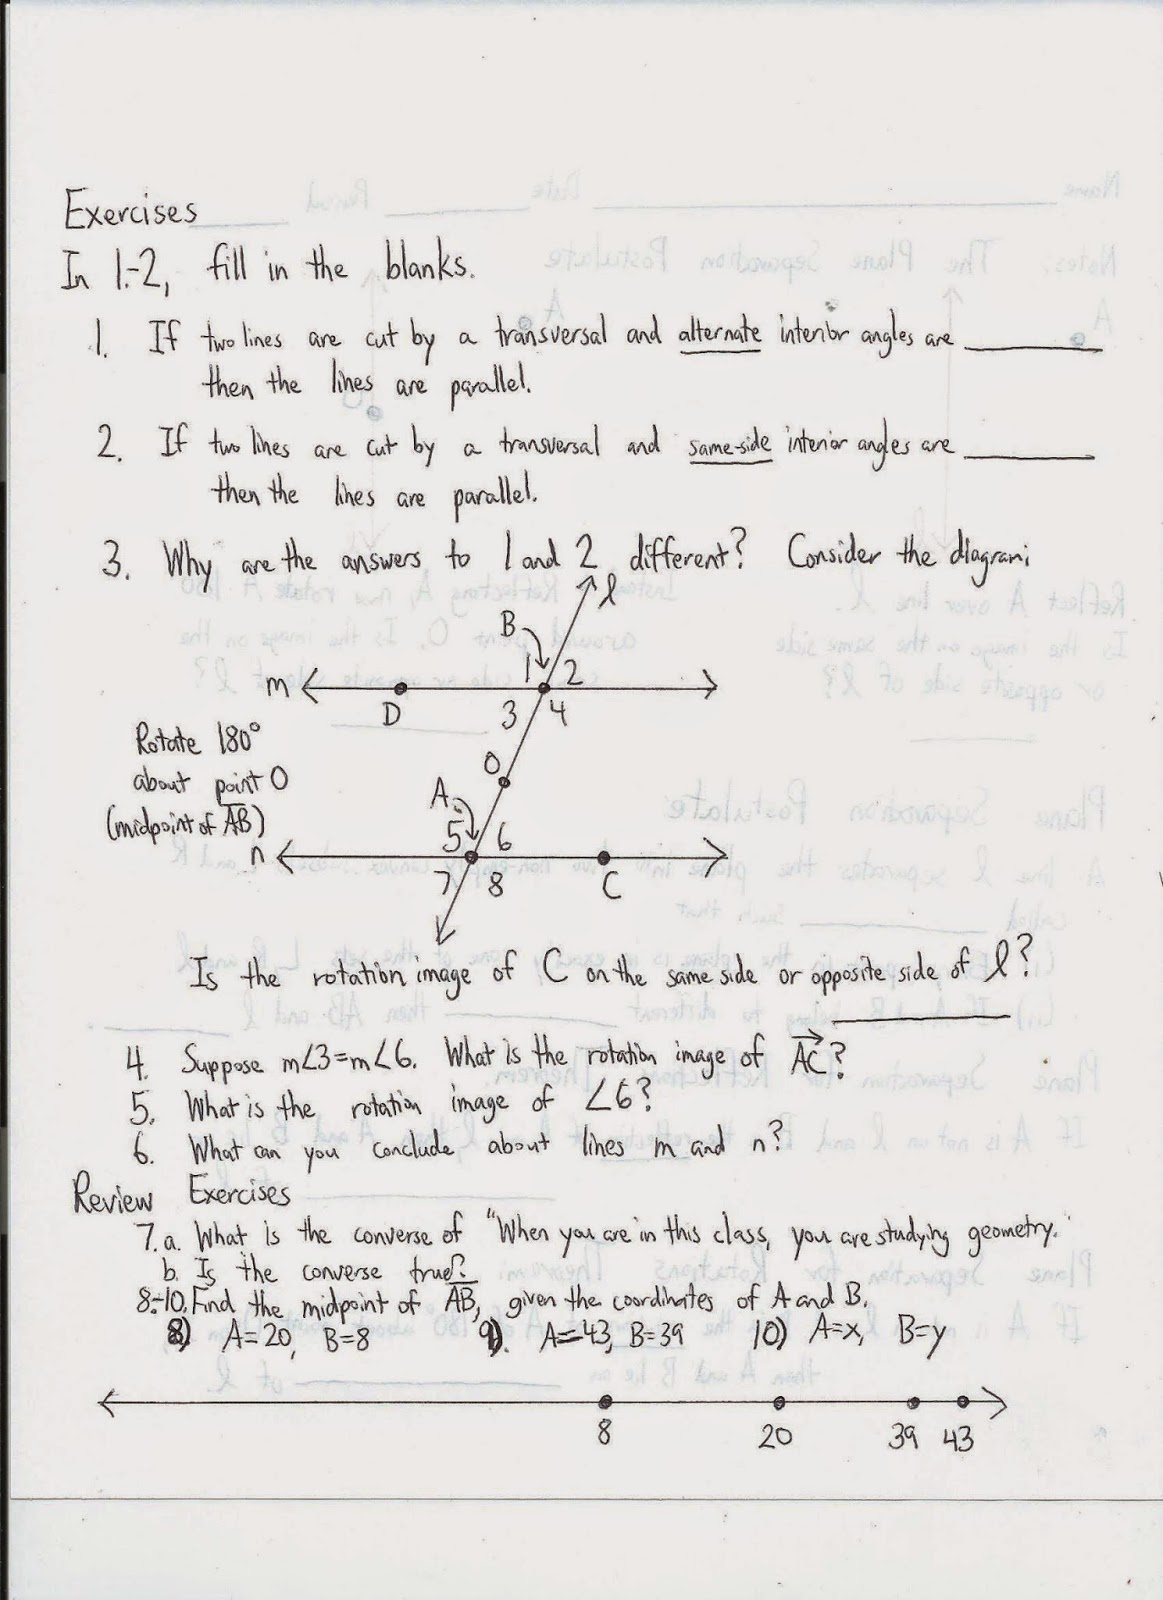 Exercises
In 1.-2, fill in the blanks.
1. If two lines are cut by a transversal and alternate interior angles are ________
then the lines are parallel.
2. If two lines are cut by a transversal and same-side interior angles are ________
then the lines are parallel.
3. Why are the answers to 1 and 2 different? Consider the diagram:
l
B
1 2
m
D 3 4
Rotate 180°
about point O
(midpoint of AB)
O
A
5 6
n
7 8 C
Is the rotation image of C on the same side or opposite side of l?
4. Suppose m∠3=m∠6. What is the rotation image of AC?
5. What is the rotation image of ∠6?
6. What can you conclude about lines m and n?
Review Exercises
7. a. What is the converse of "When you are in this class, you are studying geometry."
b. Is the converse true?
8.-10. Find the midpoint of AB, given the coordinates of A and B.
8) A=20, B=8 9). A=43, B=39 10) A=x, B=y
8 20 39 43